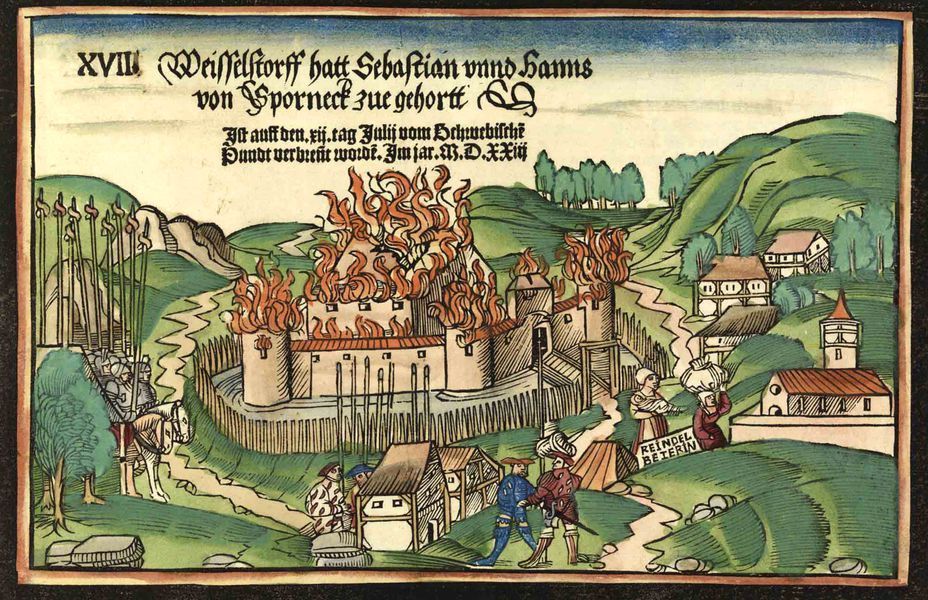 XVIII Weisselstorff hatt Sebastian vnnd Hanns
von Sporneck zue gehortt
Ist auff den .xij. tag Julij vom Schwebischē
Pundt verbreñt wordē. Im jar. M. D. XXiij
REINDEL
BETERIN